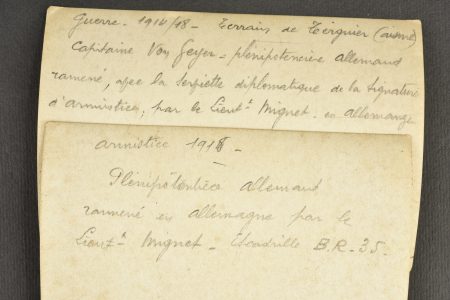 Guerre - 1914/18 - Terrain de Tergnier (aisne)
Capitaine Von Geyer - plénipotencière allemand
ramené, avec la serviette diplomatique de la signature
d'armistice, par le Lieut^t Mignet - en allemange
armistice 1918 -
Plénipotentiere allemand
ramené en allemagne par le
Lieut^t Mignet - Escadrille B.R - 35 -